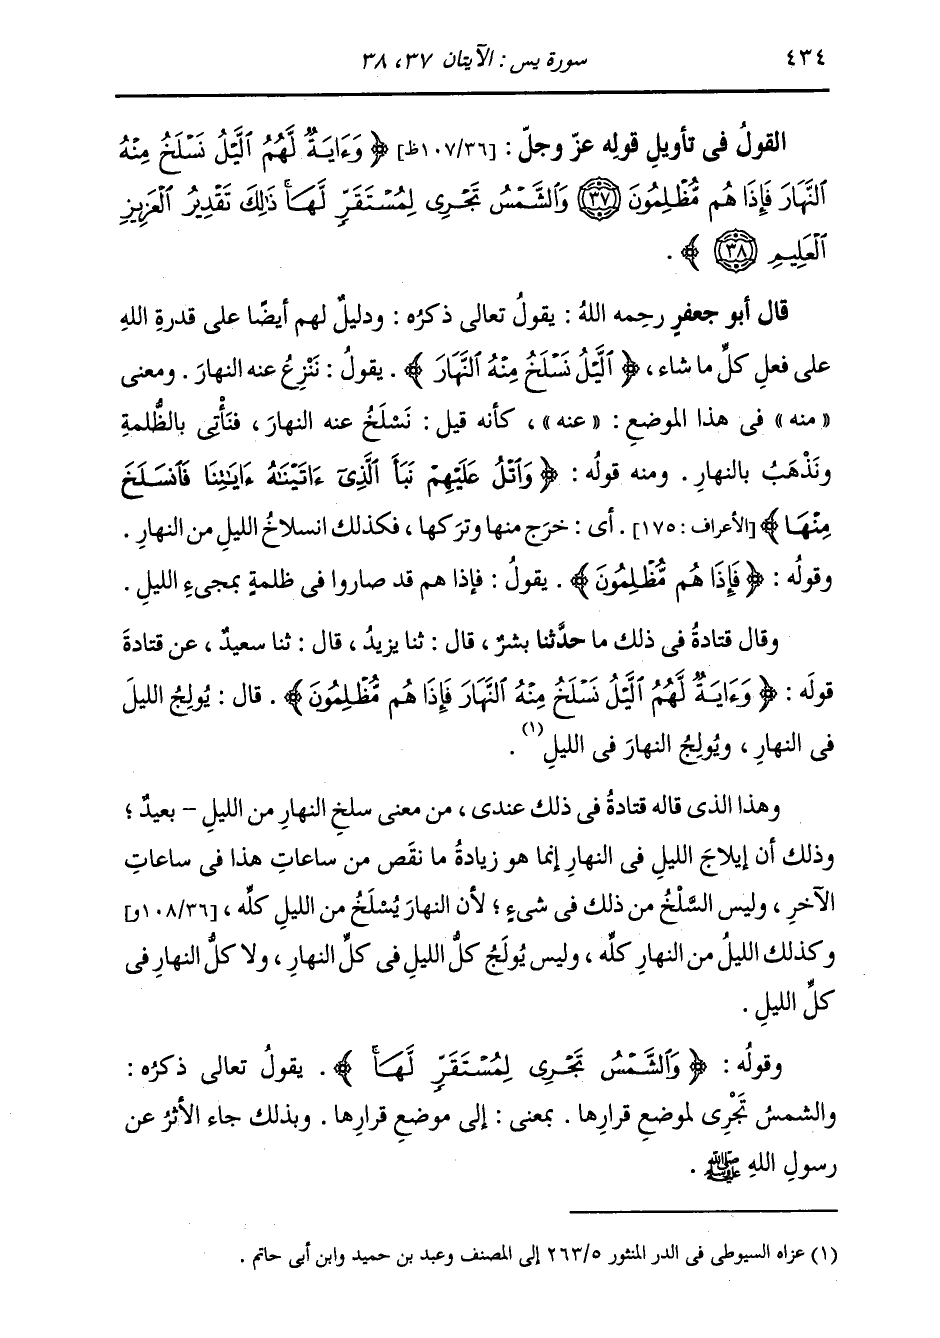 ٤٣٤ سورة يس : الآيتان ٣٧، ٣٨
القولُ فى تأويلِ قولِه عزّ وجلّ : [١٠٧/٣٦ظ] ﴿ وَءَايَةٌ لَّهُمُ ٱلَّيْلُ نَسْلَخُ مِنْهُ
ٱلنَّهَارَ فَإِذَا هُم مُّظْلِمُونَ ﴿٣٧﴾ وَٱلشَّمْسُ تَجْرِى لِمُسْتَقَرٍّ لَّهَاۚ ذَٰلِكَ تَقْدِيرُ ٱلْعَزِيزِ
ٱلْعَلِيمِ ﴿٣٨﴾ ﴾ .
قال أبو جعفرٍ رحِمه اللهُ : يقولُ تعالى ذكرُه : ودليلٌ لهم أيضًا على قدرةِ اللهِ
على فعلِ كلِّ ما شاء ، ﴿ ٱلَّيْلُ نَسْلَخُ مِنْهُ ٱلنَّهَارَ ﴾ . يقولُ : نَنْزِعُ عنه النهارَ . ومعنى
« منه » فى هذا الموضعِ : « عنه » ، كأنه قيل : نَسْلَخُ عنه النهارَ ، فنَأْتِى بالظُّلمةِ
ونَذْهَبُ بالنهارِ . ومنه قولُه : ﴿ وَٱتْلُ عَلَيْهِمْ نَبَأَ ٱلَّذِىٓ ءَاتَيْنَٰهُ ءَايَٰتِنَا فَٱنسَلَخَ
مِنْهَا ﴾ [الأعراف : ١٧٥] . أى : خرَج منها وترَكها ، فكذلك انسلاخُ الليلِ من النهارِ .
وقولُه : ﴿ فَإِذَا هُم مُّظْلِمُونَ ﴾ . يقولُ : فإذا هم قد صاروا فى ظلمةٍ بمجىءِ الليلِ .
وقال قتادةُ فى ذلك ما حدَّثنا بشرٌ ، قال : ثنا يزيدُ ، قال : ثنا سعيدٌ ، عن قتادةَ
قولَه : ﴿ وَءَايَةٌ لَّهُمُ ٱلَّيْلُ نَسْلَخُ مِنْهُ ٱلنَّهَارَ فَإِذَا هُم مُّظْلِمُونَ ﴾ . قال : يُولِجُ الليلَ
فى النهارِ ، ويُولِجُ النهارَ فى الليلِ(١) .
وهذا الذى قاله قتادةُ فى ذلك عندى ، من معنى سلخِ النهارِ من الليلِ - بعيدٌ ؛
وذلك أن إيلاجَ الليلِ فى النهارِ إنما هو زيادةُ ما نقَص من ساعاتِ هذا فى ساعاتِ
الآخرِ ، وليس السَّلْخُ من ذلك فى شىءٍ ؛ لأن النهارَ يُسْلَخُ من الليلِ كلِّه ، [١٠٨/٣٦و]
وكذلك الليلُ من النهارِ كلِّه ، وليس يُولَجُ كلُّ الليلِ فى كلِّ النهارِ ، ولا كلُّ النهارِ فى
كلِّ الليلِ .
وقولُه : ﴿ وَٱلشَّمْسُ تَجْرِى لِمُسْتَقَرٍّ لَّهَاۚ ﴾ . يقولُ تعالى ذكرُه :
والشمسُ تَجْرِى لموضعِ قرارِها . بمعنى : إلى موضعِ قرارِها . وبذلك جاء الأثرُ عن
رسولِ اللهِ ﷺ .
(١) عزاه السيوطى فى الدر المنثور ٢٦٣/٥ إلى المصنف وعبد بن حميد وابن أبى حاتم .